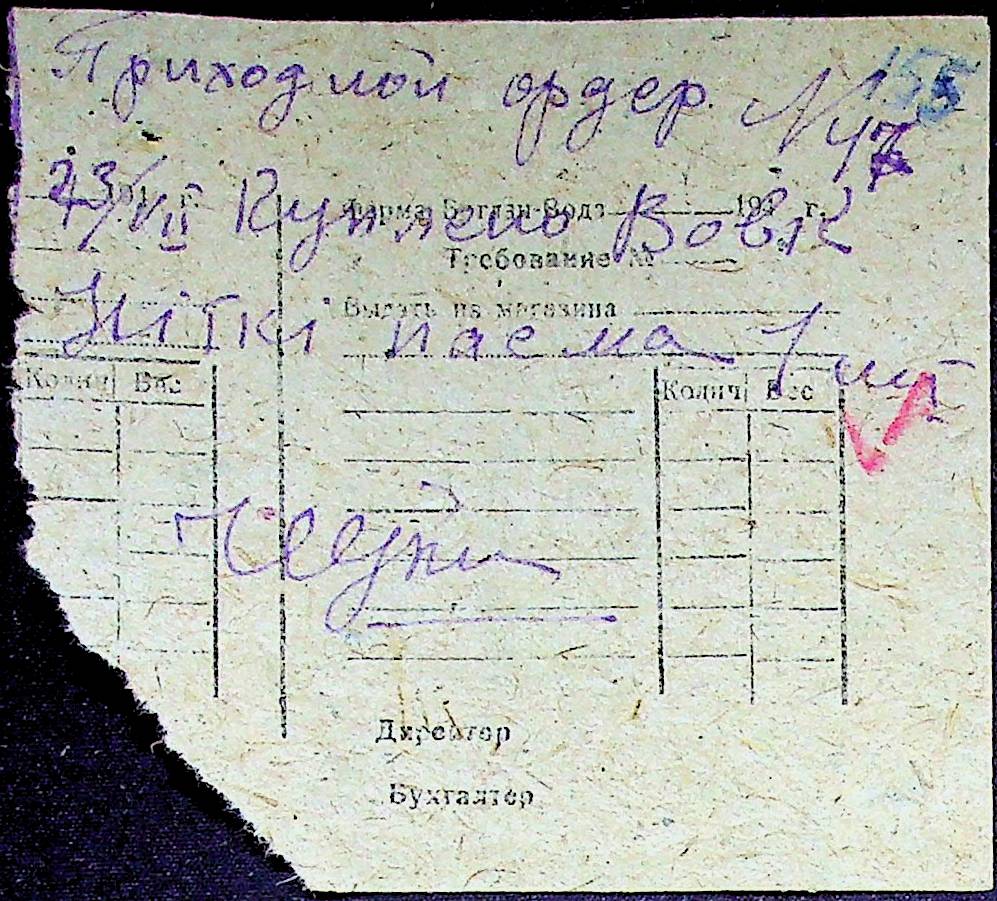 Приходной ордер N 47
155
23/VII Куплено Вовк
Ніткі пасма 1 шт
г.
Фирма Богдан-Вода 194 г.
Требование №
Выдать из магазина
Колич Вес
Колич Вес
Директор
Бухгалтер